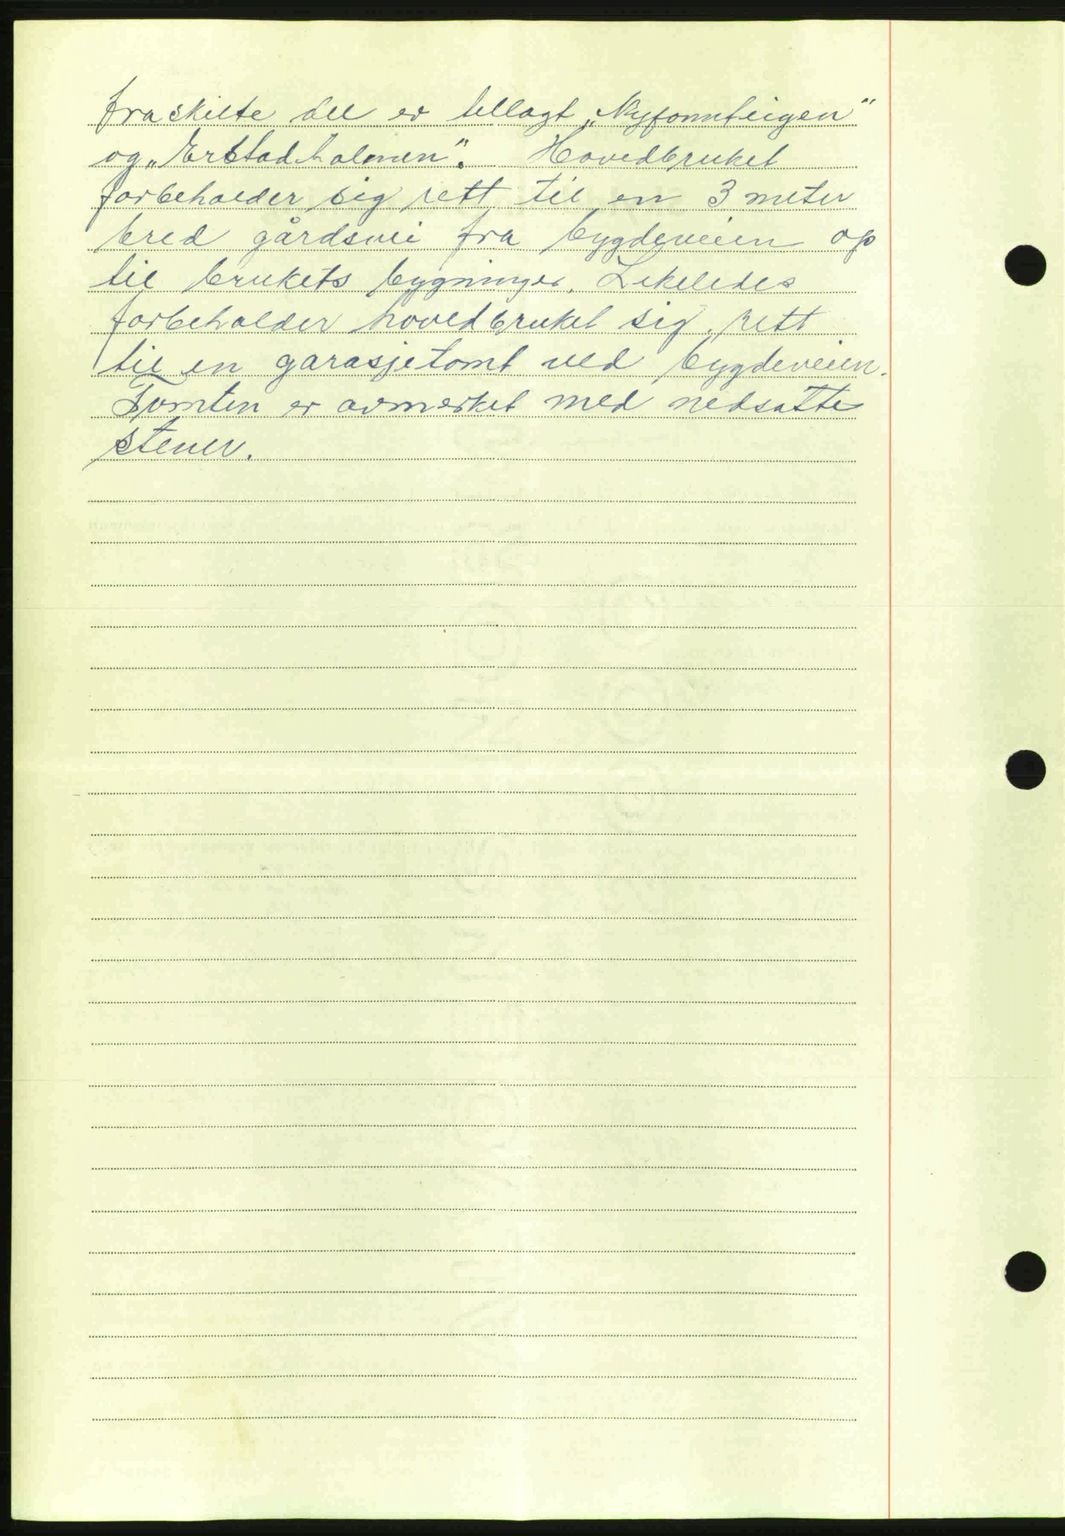 fraskilte del er tillagt „Nyfonnteigen"
og „Erstadholmen". Hovedbruket
forbeholder sig rett til en 3 meter
bred gårdsvei fra bygdeveien op
til brukets bygninger. Likeledes
forbeholder hovedbruket sig rett
til en garasjetomt ved bygdeveien.
Tomten er avmerket med nedsatte
stener.